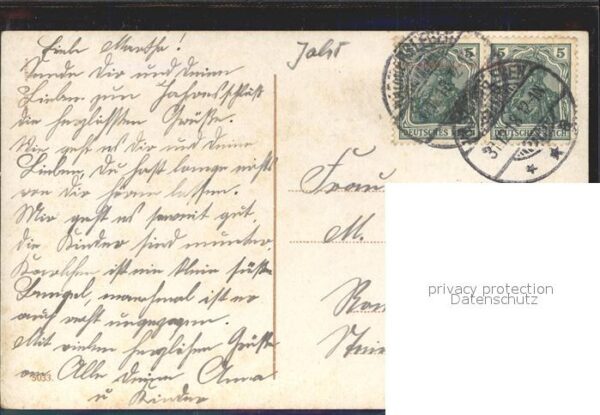 Liebe Martha!
Sende Dir und Deinen
Lieben zum Jahresschluß
die herzlichsten Grüße.
Wie geht es Dir und Deine
Lieben, Du hast lange nichts
von Dir hören lassen.
Mir geht es soweit gut,
die Kinder sind munter,
ist ein klein süße
Bengel, manchmal ist er
auch recht ungezogen.
Mit vielen herzlichen Grüße
an Alle Deine Anna
u Kinder
5033.
5 5
DEUTSCHES REICH
Frau
M.
privacy protection
Datenschutz